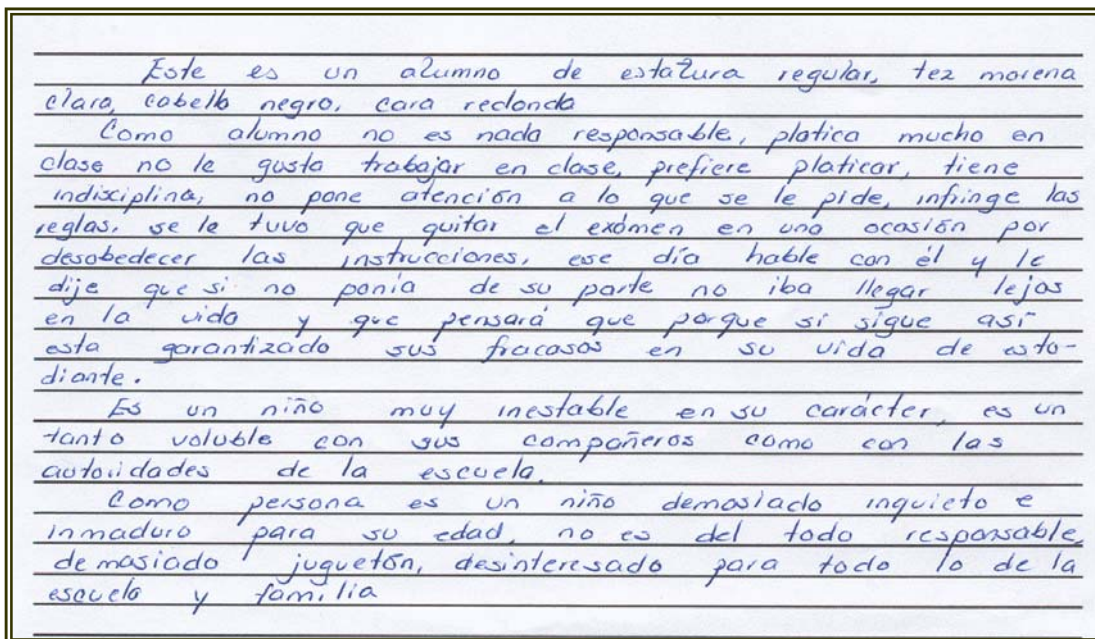 Este es un alumno de estatura regular, tez morena
clara, cabello negro, cara redonda
Como alumno no es nada responsable, platica mucho en
clase no le gusta trabajar en clase, prefiere platicar, tiene
indisciplina, no pone atención a lo que se le pide, infringe las
reglas, se le tuvo que quitar el exámen en una ocasión por
desobedecer las instrucciones, ese día hable con él y le
dije que si no ponía de su parte no iba llegar lejos
en la vida y que pensará que porque si sigue así
esta garantizado sus fracasos en su vida de estu-
diante.
Es un niño muy inestable en su carácter, es un
tanto voluble con sus compañeros como con las
autoridades de la escuela.
Como persona es un niño demasiado inquieto e
inmaduro para su edad, no es del todo responsable,
demasiado juguetón, desinteresado para todo lo de la
escuela y familia